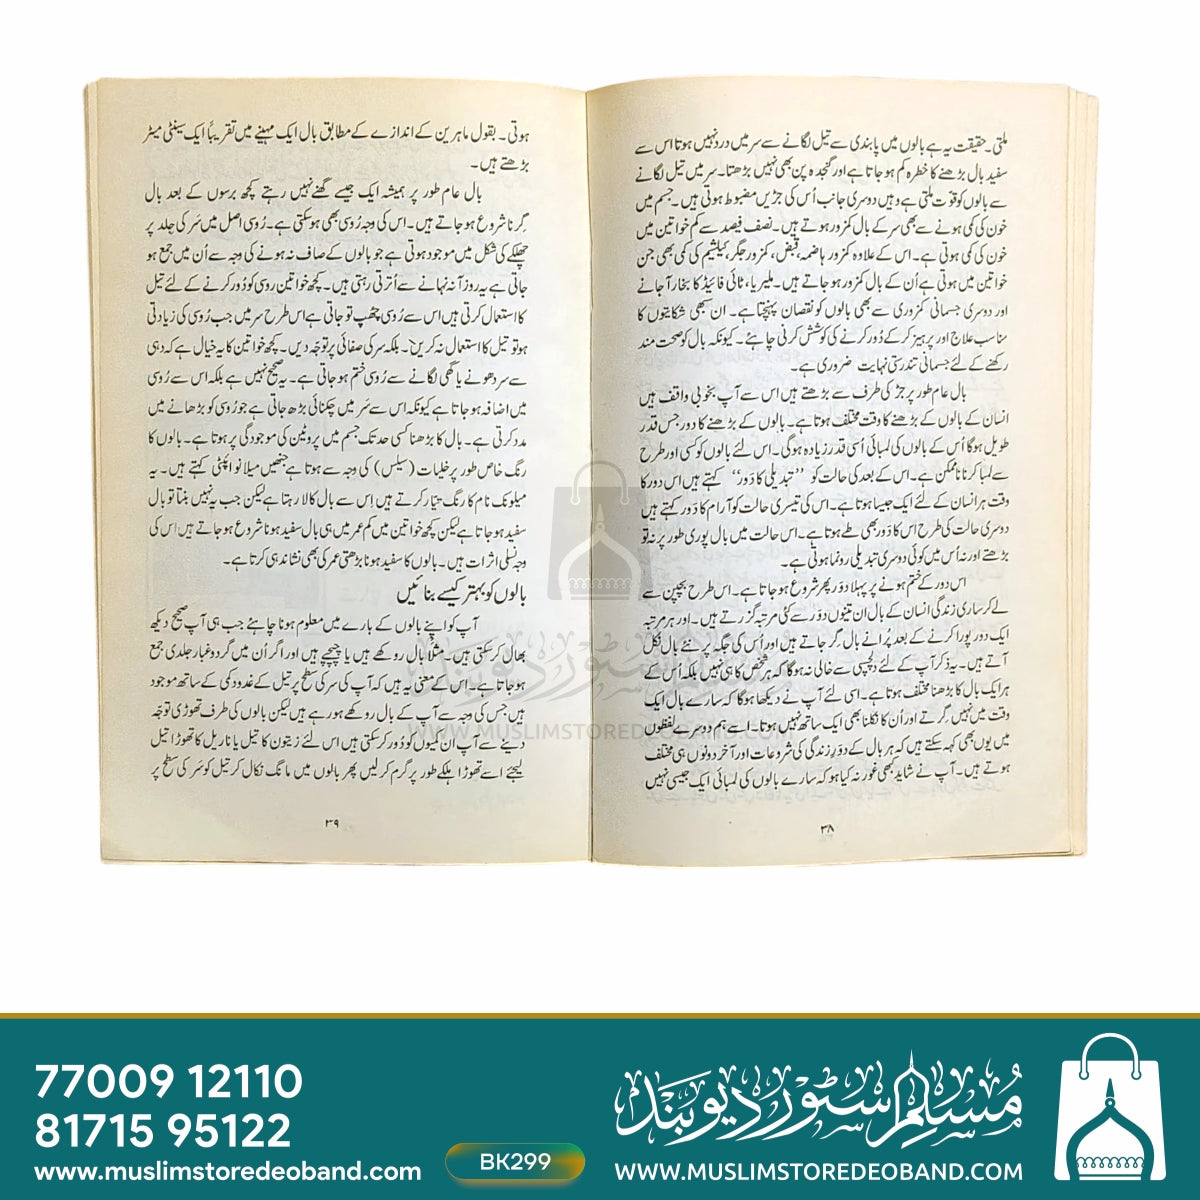 ملتی۔ حقیقت یہ ہے بالوں میں پابندی سے تیل لگانے سے سر میں درد نہیں ہوتا اس سے
سفید بال بڑھنے کا خطرہ کم ہوجاتا ہے اور گنجدہ پن بھی نہیں بڑھتا۔ سر میں تیل لگانے
سے بالوں کو قوت ملتی ہے وہیں دوسری جانب اُس کی جڑیں مضبوط ہوتی ہیں۔ جسم میں
خون کی کمی ہونے سے بھی سر کے بال کمزور ہوتے ہیں۔ نصف فیصد سے کم خواتین میں
خون کی کمی ہوتی ہے۔ اس کے علاوہ کمزور ہاضمہ، قبض، کمزور جگر، کیلشیم کی کمی بھی جن
خواتین میں ہوتی ہے اُن کے بال کمزور ہوجاتے ہیں۔ ملیریا، ٹائی فائیڈ کا بخار آجانے
اور دوسری جسمانی کمزوری سے بھی بالوں کو نقصان پہنچتا ہے۔ ان سبھی شکایتوں کا
مناسب علاج اور پرہیز کرکے دُور کرنے کی کوشش کرنی چاہئے۔ کیونکہ بال کو صحت مند
رکھنے کے لئے جسمانی تندرستی نہایت ضروری ہے۔
بال عام طور پر جڑ کی طرف سے بڑھتے ہیں اس سے آپ بخوبی واقف ہیں
انسان کے بالوں کے بڑھنے کا وقت مختلف ہوتا ہے۔ بالوں کے بڑھنے کا دور جس قدر
طویل ہوگا اُس کے بالوں کی لمبائی اُسی قدر زیادہ ہوگی۔ اس لئے بالوں کو کسی اور طرح
سے لمبا کرنا ناممکن ہے۔ اس کے بعد کی حالت کو ’’تبدیلی کا دَور‘‘ کہتے ہیں اس دور کا
وقت ہر انسان کے لئے ایک جیسا ہوتا ہے۔ اس کی تیسری حالت کو آرام کا دَور کہتے ہیں
دوسری حالت کی طرح اس کا دَور بھی طے ہوتا ہے۔ اس حالت میں بال پوری طور پر نہ تو
بڑھتے اور نہ اُس میں کوئی دوسری تبدیلی رونما ہوتی ہے۔
اس دور کے ختم ہونے پر پہلا دَور پھر شروع ہوجاتا ہے۔ اس طرح بچپن سے
لے کر ساری زندگی انسان کے بال ان تینوں دَور سے کئی مرتبہ گزرتے ہیں۔ اور ہر مرتبہ
ایک دور پورا کرنے کے بعد پُرانے بال گر جاتے ہیں اور اُس کی جگہ پر نئے بال نکل
آتے ہیں۔ یہ ذکر آپ کے لئے دلچسپی سے خالی نہ ہوگا کہ ہر شخص کا ہی نہیں بلکہ اُس کے
ہر ایک بال کا بڑھنا مختلف ہوتا ہے۔ اسی لئے آپ نے دیکھا ہوگا کہ سارے بال ایک
وقت میں نہیں گرتے اور اُن کا نکلنا بھی ایک ساتھ نہیں ہوتا۔ اسے ہم دوسرے لفظوں
میں یوں بھی کہہ سکتے ہیں کہ ہر بال کے دورِ زندگی کی شروعات اور آخر دونوں ہی مختلف
ہوتے ہیں۔ آپ نے شاید بھی غور نہ کیا ہو کہ سارے بالوں کی لمبائی ایک جیسی نہیں
۳۸
ہوتی۔ بقول ماہرین کے اندازے کے مطابق بال ایک مہینے میں تقریباً ایک سینٹی میٹر
بڑھتے ہیں۔
بال عام طور پر ہمیشہ ایک جیسے گھنے نہیں رہتے کچھ برسوں کے بعد بال
گرنا شروع ہوجاتے ہیں۔ اس کی وجہ رُوسی بھی ہوسکتی ہے۔ رُوسی اصل میں سَر کی جلد پر
چھلکے کی شکل میں موجود ہوتی ہے جو بالوں کے صاف نہ ہونے کی وجہ سے اُن میں جمع ہو
جاتی ہے یہ روز آنہ نہانے سے اُترتی رہتی ہیں۔ کچھ خواتین روسی کو دُور کرنے کے لئے تیل
کا استعمال کرتی ہیں اس سے رُوسی چھپ تو جاتی ہے اس طرح سر میں جب رُوسی کی زیادتی
ہو تو تیل کا استعمال نہ کریں۔ بلکہ سر کی صفائی پر توجہ دیں۔ کچھ خواتین کا یہ خیال ہے کہ دہی
سے سر دھونے یا گھی لگانے سے رُوسی ختم ہوجاتی ہے۔ یہ صحیح نہیں ہے بلکہ اس سے رُوسی
میں اضافہ ہوجاتا ہے کیونکہ اس سے سَر میں چکنائی بڑھ جاتی ہے جو رُوسی کو بڑھانے میں
مدد کرتی ہے۔ بال کا بڑھنا کسی حد تک جسم میں پروٹین کی موجودگی پر ہوتا ہے۔ بالوں کا
رنگ خاص طور پر خلیات (سیلس) کی وجہ سے ہوتا ہے جنھیں میلانو اپٹی کہتے ہیں۔ یہ
میلونک نام کا رنگ تیار کرتے ہیں اِس سے بال کالا رہتا ہے لیکن جب یہ نہیں بنتا تو بال
سفید ہوجاتا ہے لیکن کچھ خواتین میں کم عمر میں ہی بال سفید ہونا شروع ہوجاتے ہیں اس کی
وجہ نسلی اثرات ہیں۔ بالوں کا سفید ہونا بڑھتی عمر کی بھی نشاندہی کرتا ہے۔
بالوں کو بہتر کیسے بنائیں
آپ کو اپنے بالوں کے بارے میں معلوم ہونا چاہئے جب ہی آپ صحیح دیکھ
بھال کرسکتی ہیں۔ مثلاً بال روکھے ہیں یا چپچپے ہیں اور اگر اُن میں گرد و غبار جلدی جمع
ہوجاتا ہے۔ اس کے معنی یہ ہیں کہ آپ کی سر کی سطح پر تیل کے غدود کمی کے ساتھ موجود
ہیں جس کی وجہ سے آپ کے بال روکھے ہو رہے ہیں لیکن بالوں کی طرف تھوڑی توجہ
دینے سے آپ ان کمیوں کو دُور کرسکتی ہیں اس لئے زیتون کا تیل یا ناریل کا تھوڑا تیل
لیجئے اسے تھوڑا ہلکے طور پر گرم کرلیں پھر بالوں میں مانگ نکال کر تیل کو سَر کی سطح پر
۳۹
WWW.MUSLIMSTOREDEOBAND.COM
77009 12110
81715 95122
www.muslimstoredeoband.com
BK299
مسلم سٹور دیوبند
WWW.MUSLIMSTOREDEOBAND.COM